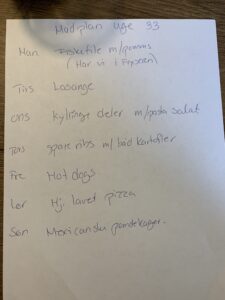 Madplan uge 33
Man Fiskefile m/pommes
(Har vi i fryseren)
Tirs Lasange
Ons kyllinge deler m/pasta salat
Tors spare ribs m/båd kartofler
Fre Hot dogs
Lør Hj. lavet pizza
Søn Mexicanske pandekager.